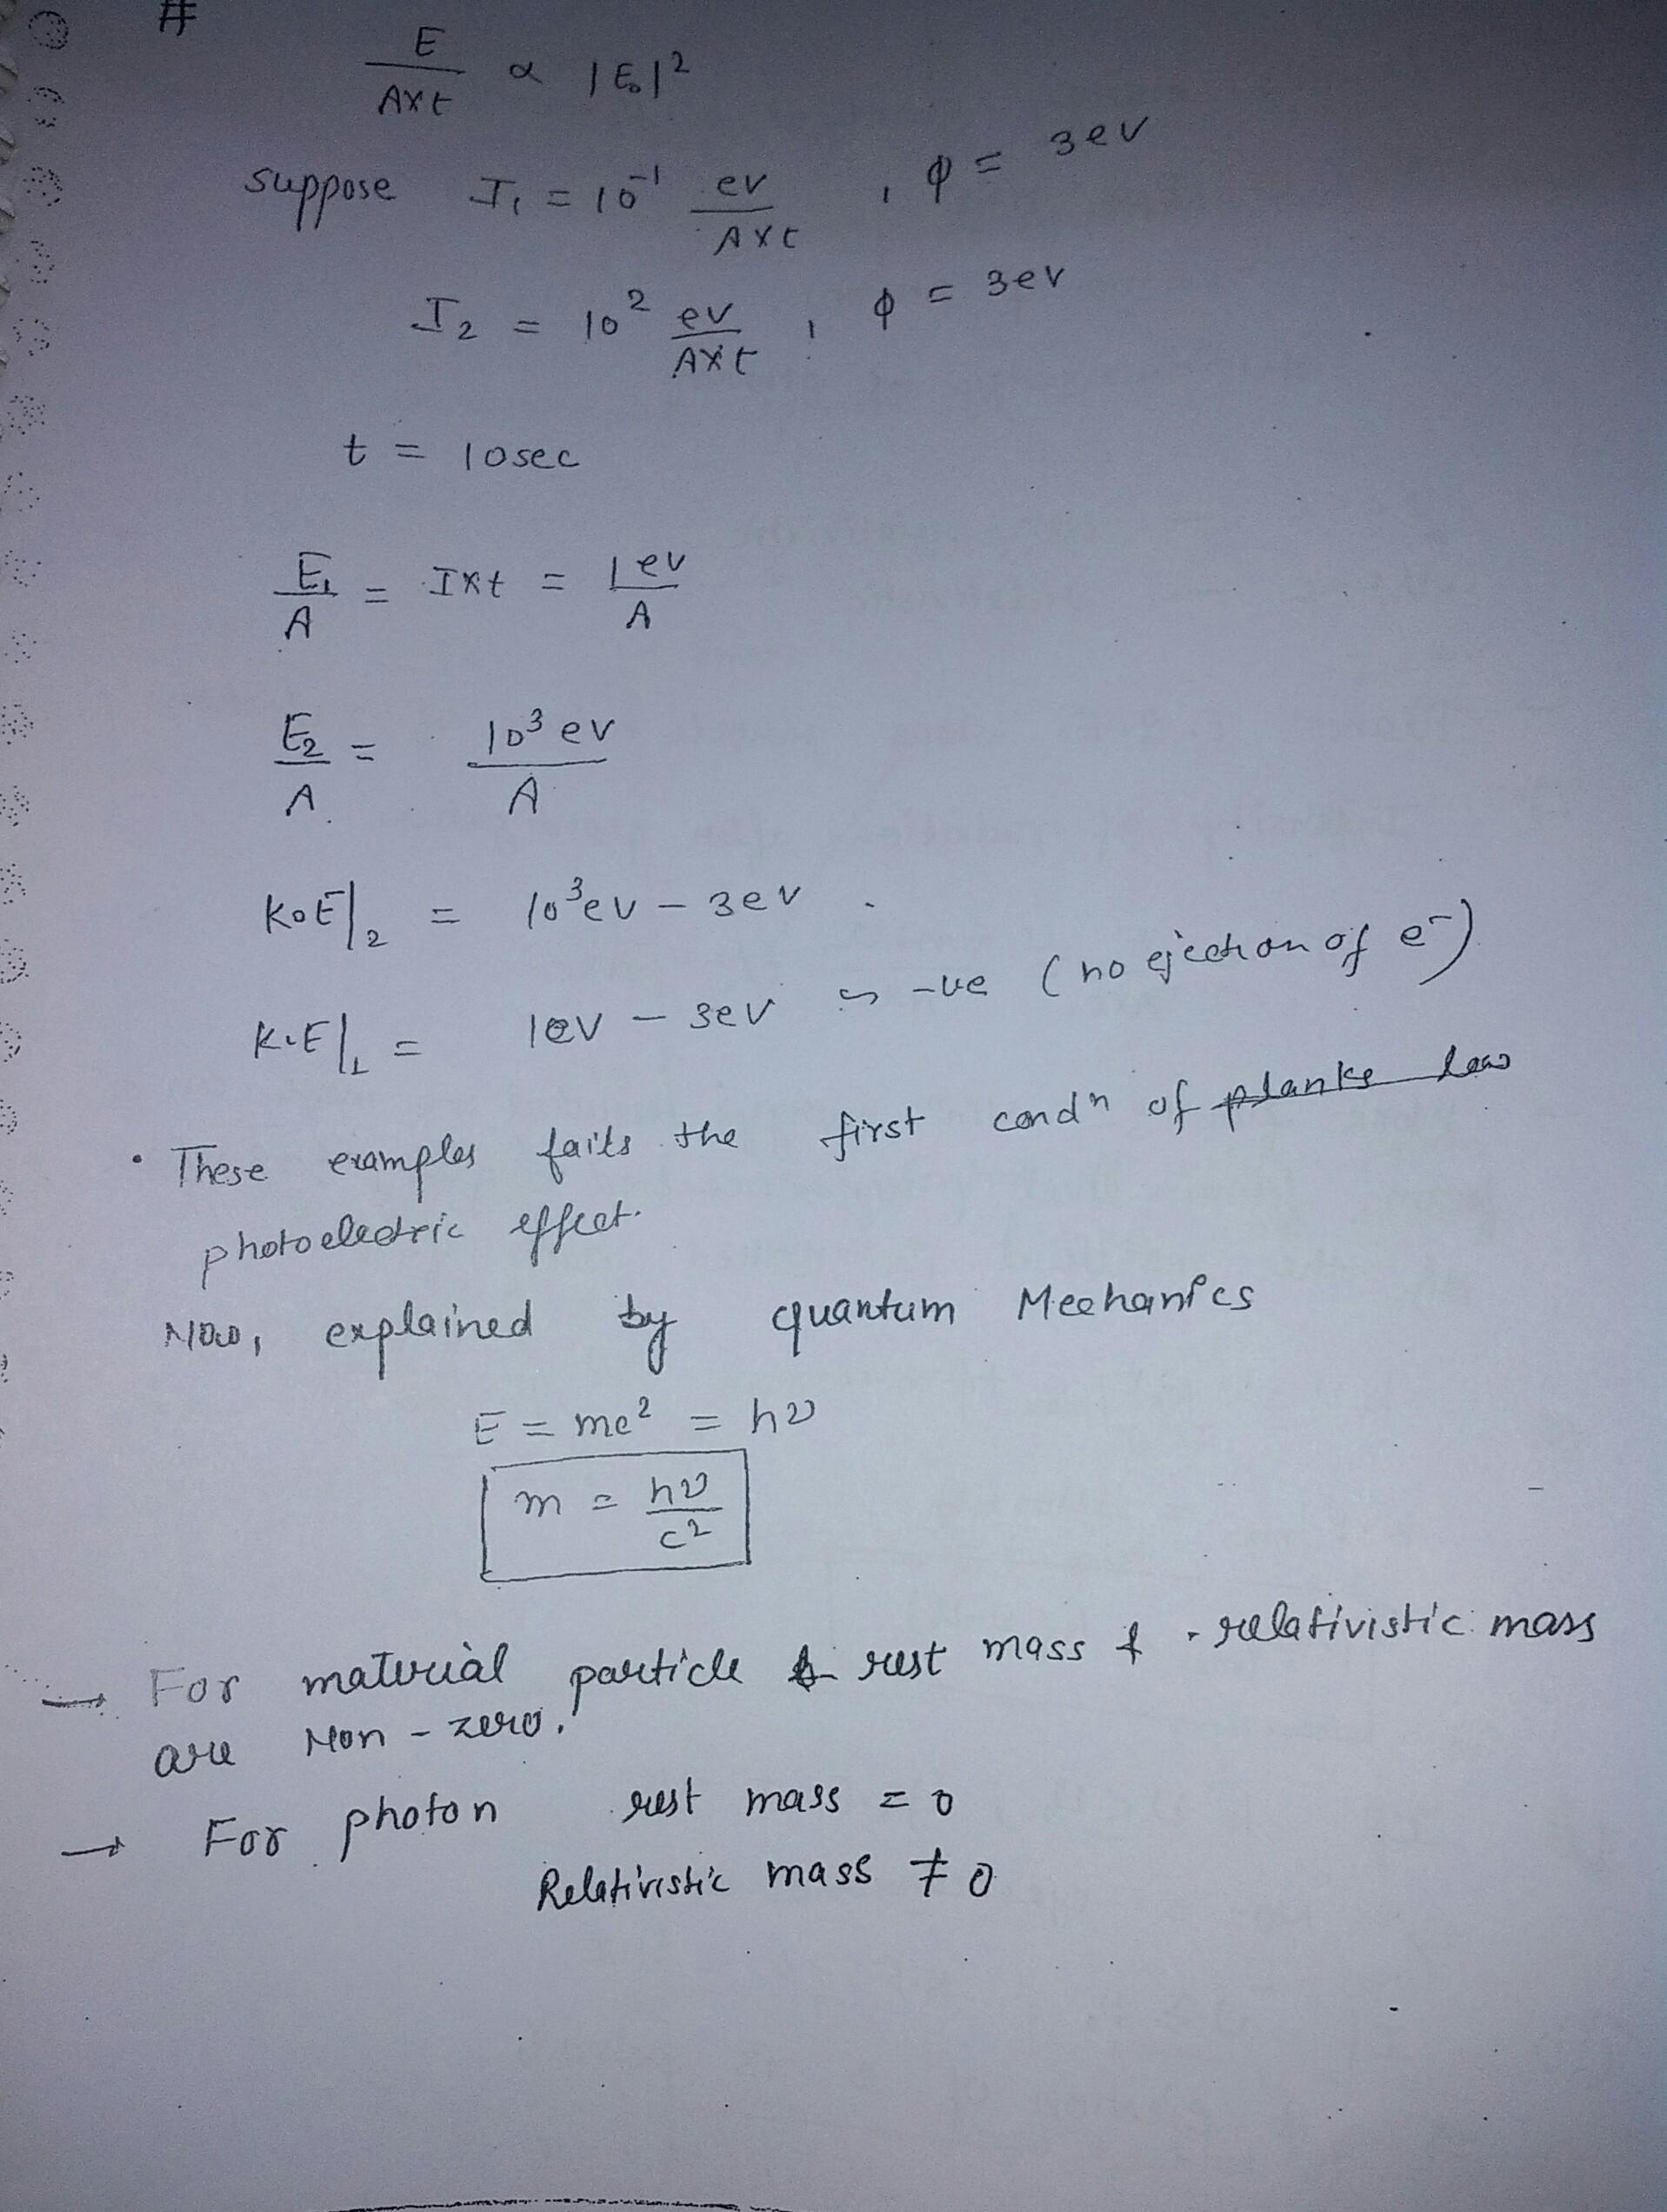 #
E / A×t ∝ |E₀|²
suppose I₁ = 10⁻¹ ev / A×t , φ = 3ev
I₂ = 10² ev / A×t , φ = 3ev
t = 10sec
E₁ / A = I×t = 1ev / A
E₂ / A = 10³ ev / A
K.E|₂ = 10³ev − 3ev .
K.E|₁ = 1ev − 3ev ⇒ -ve (no ejection of e⁻)
• These examples fails the first condⁿ of planks law
photoelectric effect.
Now, explained by quantum Mechanics
E = mc² = hν
m = hν / c²
→ For material particle rest mass & relativistic mass
are Non-zero.
→ For photon rest mass = 0
Relativistic mass ≠ 0